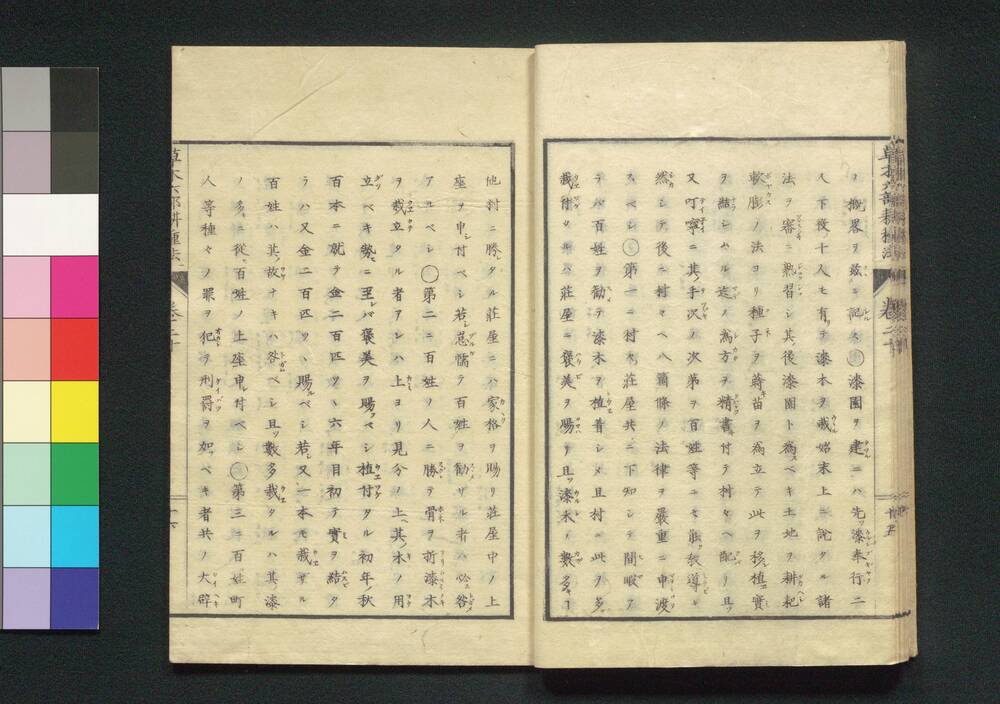 ヨ概畧ヲ茲ニ記ス漆園ヲ建ニハ先ツ漆奉行二
人下役十人モ有テ漆木ヲ栽始末上ニ説タル諸
法ヲ審ニ熟習シ其後漆園ト為スベキ土地ヲ耕耙
軟膨ノ法ヨリ種子ヲ蒔苗ヲ為立テ此ヲ移植實
ヲ結シムル迄ノ為方ヲ精書付テ村々ヘ配リ且ツ
又叮嚀ニ其手次ノ次第ヲ百姓等ニモ能教導シ
然シテ後ニ村々ヘ八箇條ノ法律ヲ嚴重ニ申渡
スベシ第一ニ村々莊屋共ニ下知シテ間暇ヲ
テバ百姓ヲ勸テ漆木ヲ植昔シメ且村ニ此ヲ多ク
栽付タルハ莊屋ニ褒美ヲ賜リ且ツ漆木ノ數多
他村ニ勝タル莊屋ニハ家格ヲ賜リ莊屋中ノ上
座ヲ申付ベシ若シ怠懦テ百姓ヲ勸ザル者ハ必ス咎
アルベシ〇第二ニ百姓ノ人ニ勝テ骨ヲ折漆木
ヲ栽立タル者アレハ上ヨリ見分ノ上ヘ其木ノ用
立ベキ勢ニ至レバ褒美ヲ賜フベシ植付タル初年秋
百本ニ就テ金二百匹ツヽ六年目初テ實ヲ結タ
ラハ又金二百匹ツヽ賜ルベシ若シ又一本モ栽ザル
百姓ハ其故ナキハ咎ベシ且ツ數多栽タルハ其漆
ノ多ニ從百姓ノ上座申付ベシ第三ニ百姓町
人等種々ノ罪ヲ犯ヲ刑罸ヲ加ベキ者共ノ大辟
草木六部耕種法
卷二十
十五